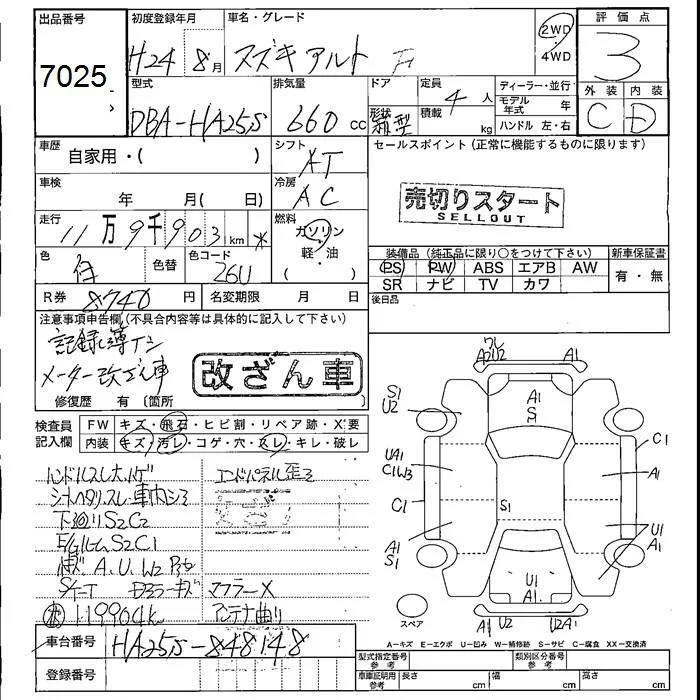 出品番号
7025
初度登録年月
H24 8月
車名・グレード
スズキ アルト F
2WD
・
4WD
評価点
3
外装 内装
C D
型式
DBA-HA25S
排気量
660 cc
ドア
形状
定員
4人
積載
kg
ディーラー・並行
モデル年式 年
ハンドル 左・右
車歴
自家用・( )
シフト
AT
セールスポイント (正常に機能するものに限ります)
売切りスタート
SELLOUT
車検
年 月( 日)
冷房
AC
走行
11万9千903km *
燃料
ガソリン
軽・油
( )
色
白
色替
色コード
26U
装備品 (純正品に限り○をつけて下さい)
PS PW ABS エアB AW
SR ナビ TV カワ
新車保証書
有・無
R券 8740円
名変期限 月 日
後日品
注意事項申告欄(不具合内容等は具体的に記入して下さい)
記録簿ナシ
メーター改ざん車
改ざん車
修復歴 有(箇所
検査員記入欄
FW キズ・飛石・ヒビ割・リペア跡・X要
内装 キズ・汚レ・コゲ・穴・スレ・キレ・破レ
ハンドルスレ大ハゲ
エンドパネル歪ミ
下廻りS2C2
A.U.W2
マフラーX
119904k
アンテナ曲り
ワレ
A2U2
A1
S1
U2
A1
S
C1
UA1
C1W3
A1
C1
S1
A1
S
U1
A1
U1
A1
A1
U2
U2A1
スペア
A-キズ E-エクボ U-凹み W-補修跡 S-サビ C-腐食 XX-交換済
車台番号
HA25S-848148
登録番号
型式指定番号
参考
類別区分番号
参考
車庫証明用
参考
長さ cm
幅 cm
高さ cm